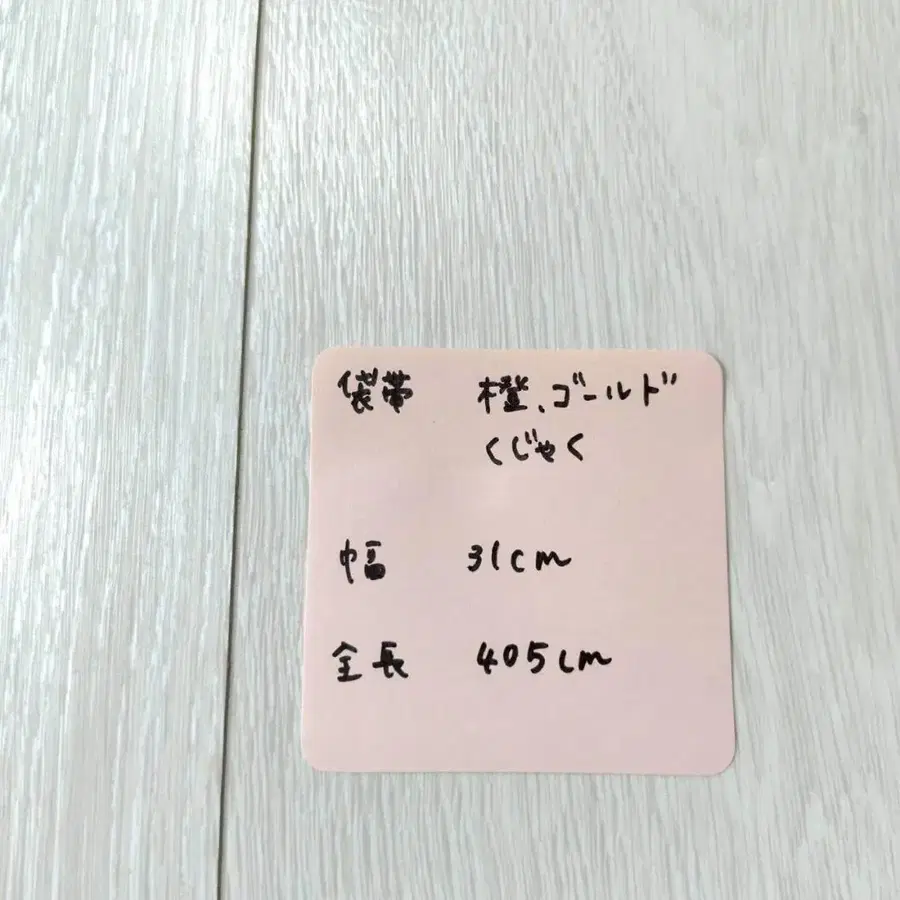 袋帯 橙、ゴールド
くじゃく
幅 31cm
全長 405cm